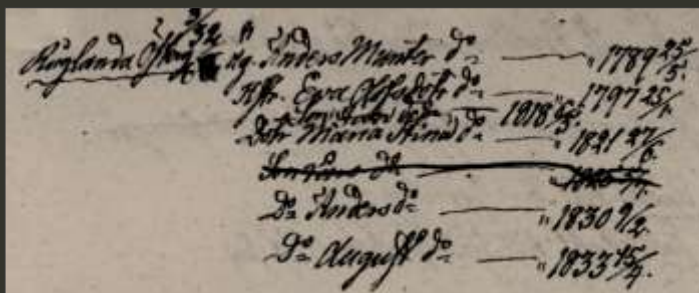 9/32
Ruglanda Östrg. Äg. Anders Munter do " 1789 25/5.
Hfr. Eva Olofsdotr do " 1797 25/1.
1818
Dotr Maria Stina do " 1821 27/6.
Son do 1826
Do Anders do " 1830 9/2.
Do August do " 1833 15/4.